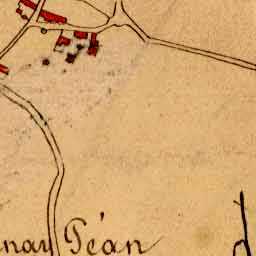 nay Péan